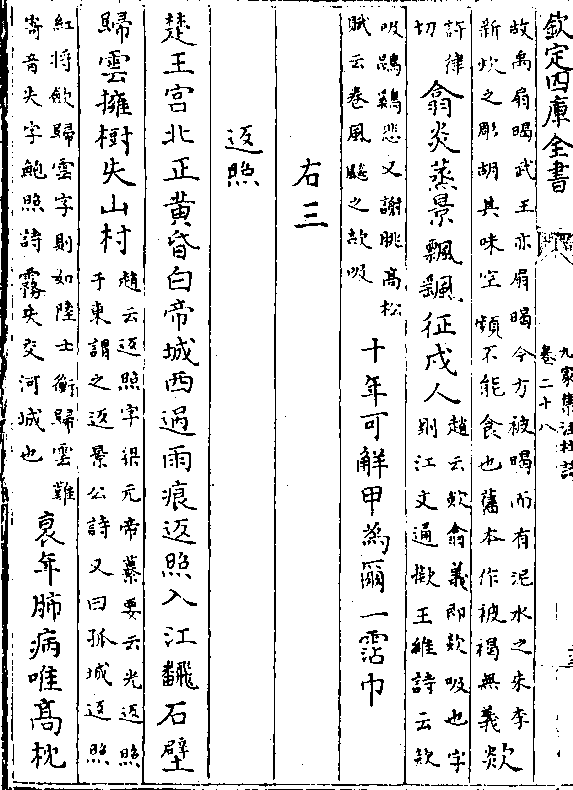 欽定四庫全書
九家集注杜詩
卷二十八
故禹扇暍武王亦扇暍今方被暍而有泥水之朱李
新炊之彫胡其味空煩不能食也舊本作被褐無義
欻
許律
切
翕炎蒸景飄颻征戍人
趙云欻翕義即欻吸也字
則江文通擬王維詩云欻
吸鵾鷄悲又謝朓高松
賦云卷風飈之欻吸
十年可解甲為爾一霑巾
右三
返照
楚王宫北正黄昏白帝城西過雨痕返照入江翻石壁
歸雲擁樹失山村
趙云返照字梁元帝纂要云光返照
于東謂之返景公詩又曰孤城返照
紅将歛歸雲字則如陸士衡歸雲難
寄音失字鮑照詩霧失交河城也
衰年肺病唯髙枕